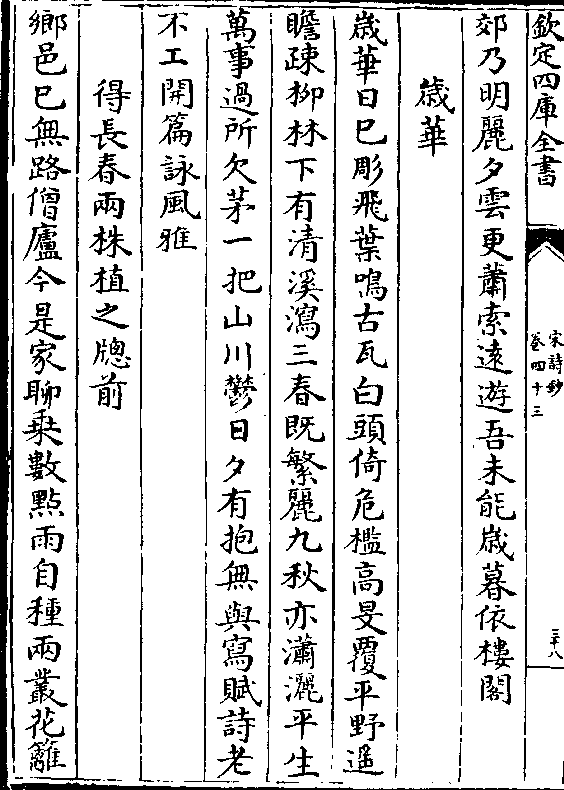 欽定四庫全書
宋詩鈔
卷四十三
三十八
郊乃明麗夕雲更蕭索遠遊吾未能歳暮依樓閣
歳華
歳華日已彫飛葉鳴古瓦白頭倚危檻高旻覆平野遥
瞻疎柳林下有清溪瀉三春既繁麗九秋亦瀟灑平生
萬事過所欠茅一把山川鬱日夕有抱無與寫賦詩老
不工開篇詠風雅
得長春兩株植之牎前
鄉邑已無路僧廬今是家聊乗數點雨自種兩叢花籬